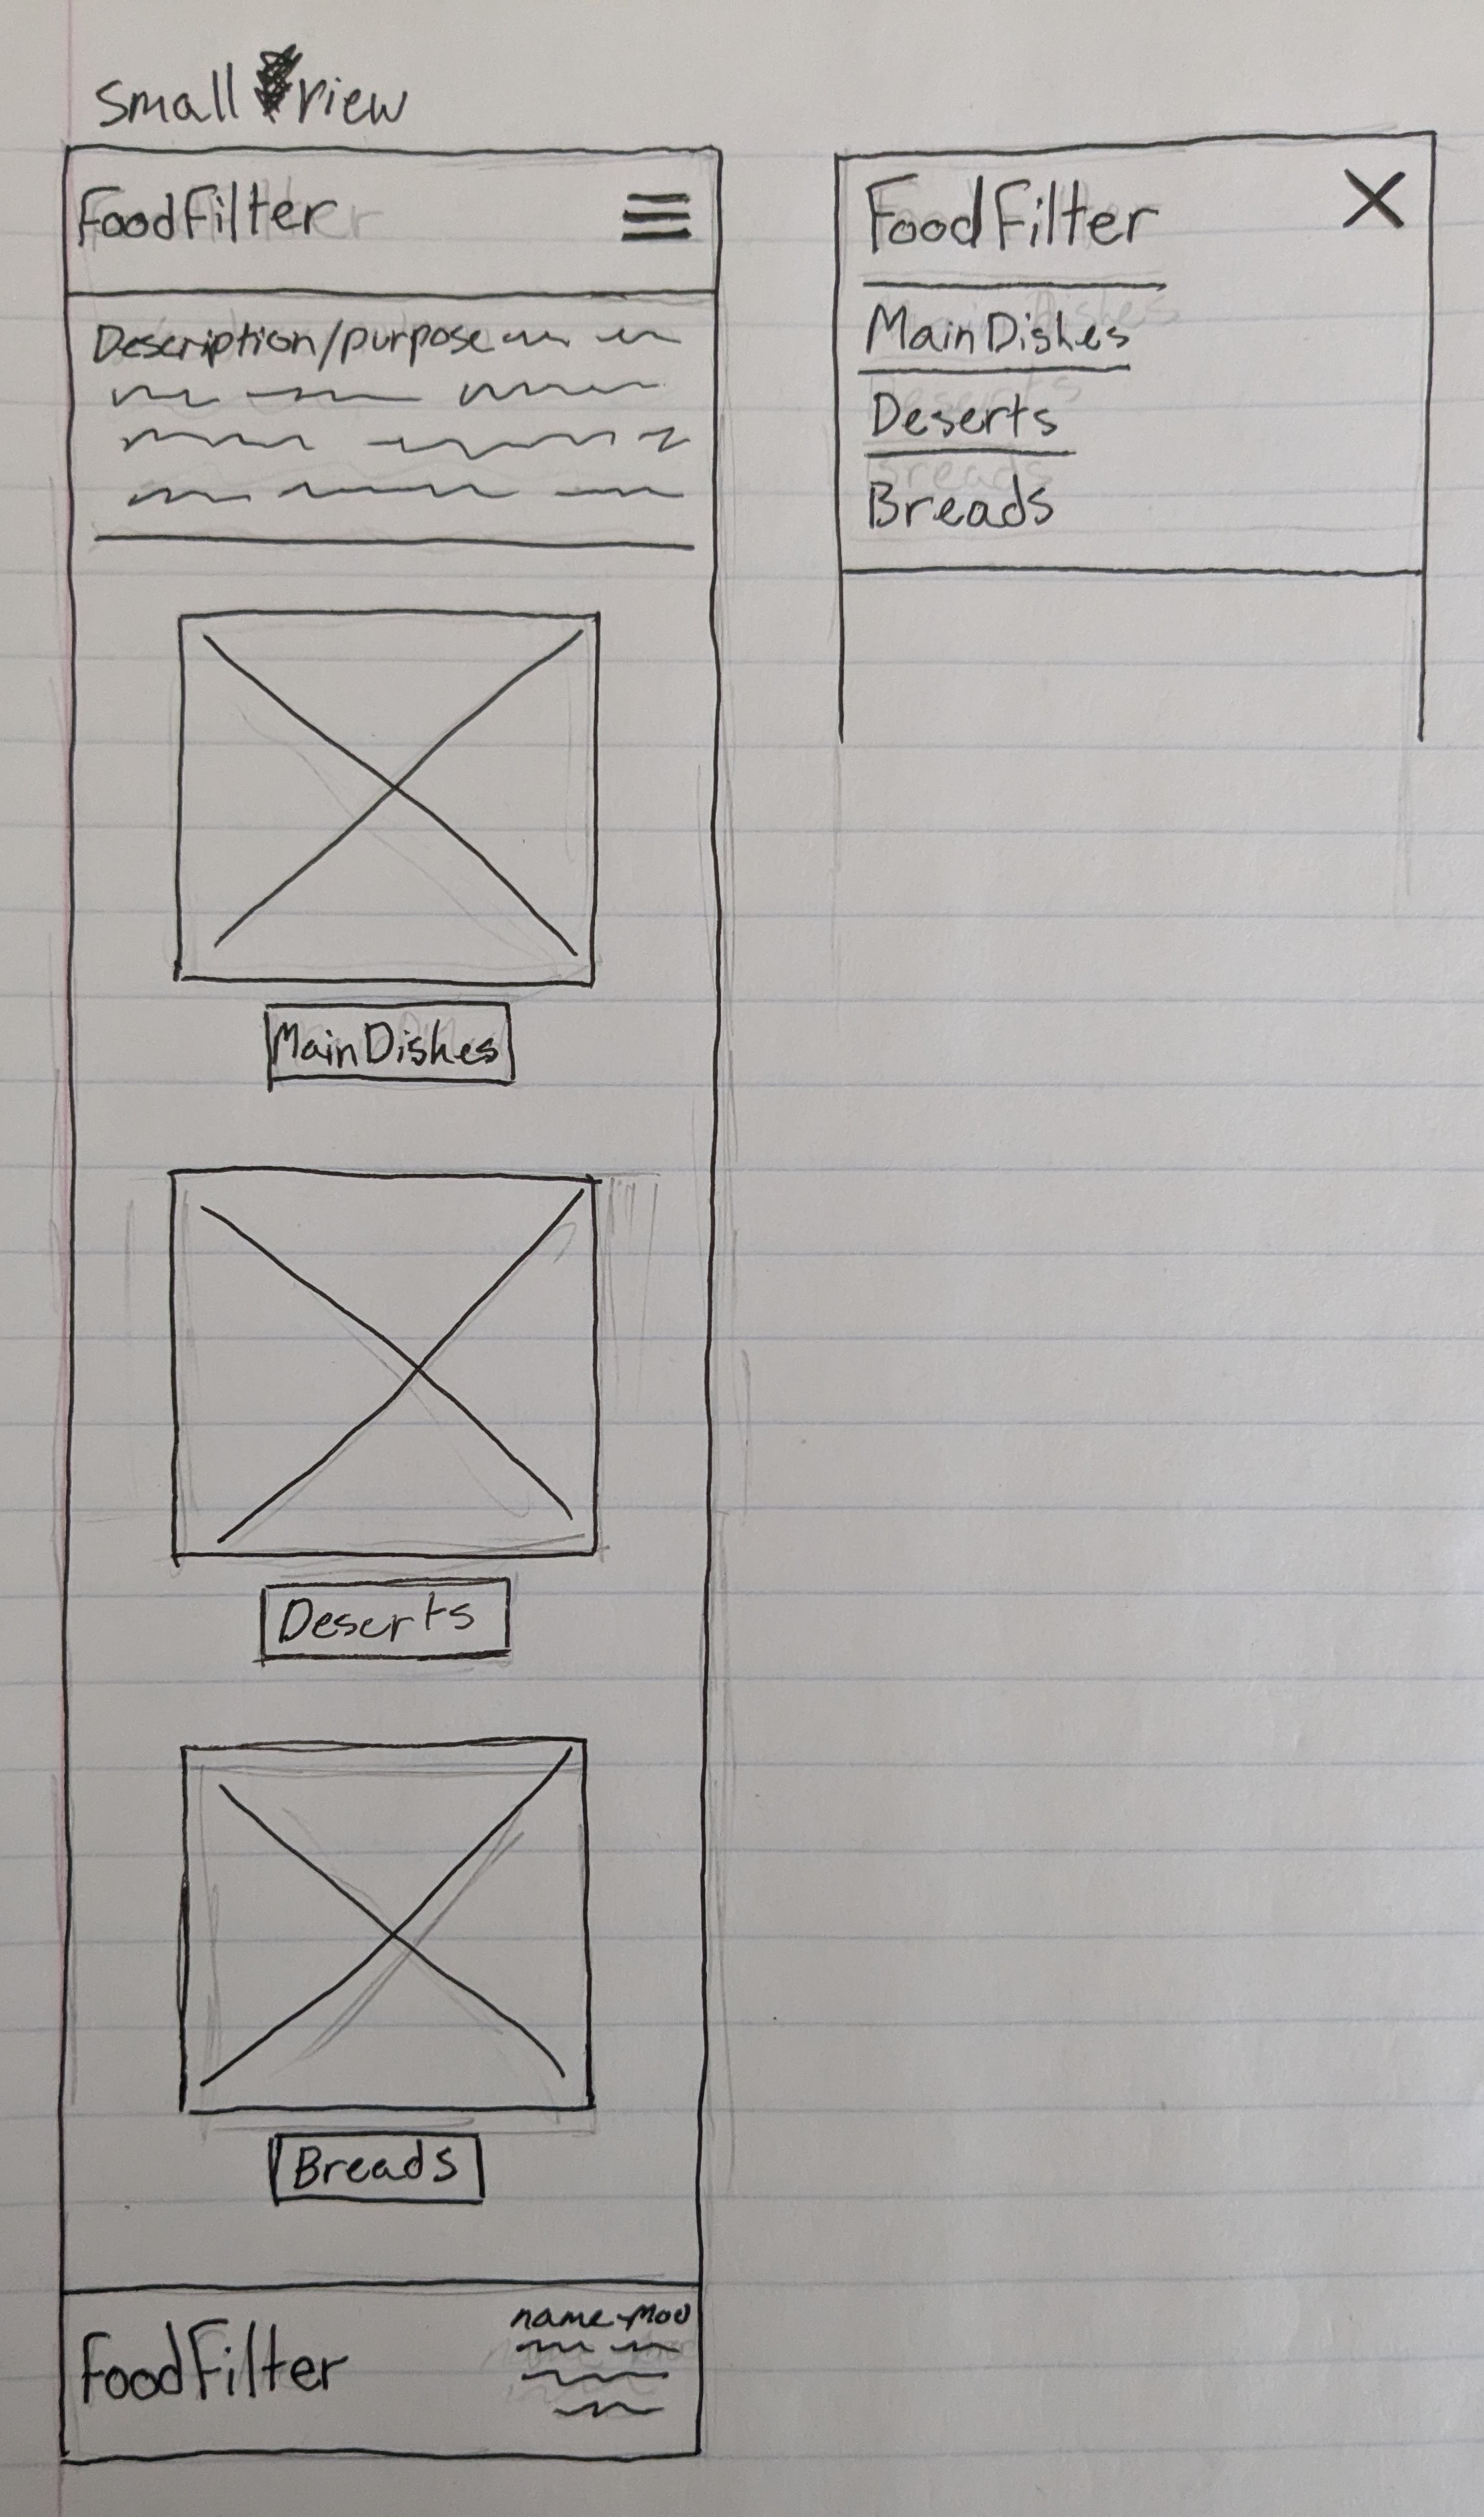 Small view
FoodFilter
Description/purpose
MainDishes
Deserts
Breads
FoodFilter
FoodFilter
MainDishes
Deserts
Breads